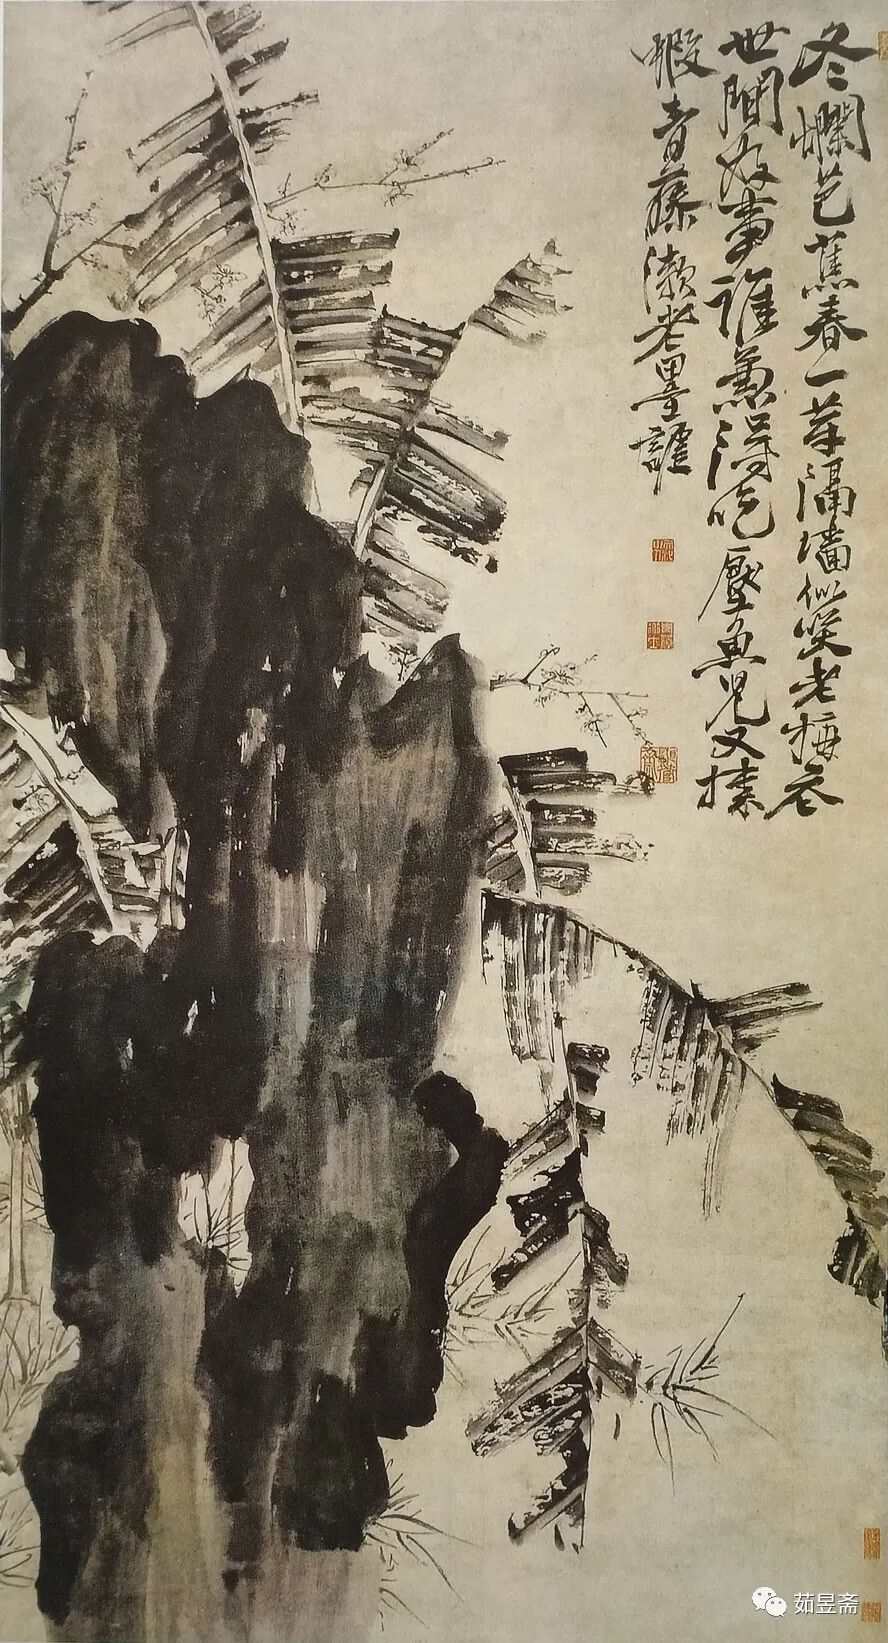 冬爛芭蕉春一芽隔墻似笑老梅花
世間好事誰兼得吃壓魚兒又揀
蝦青藤漱老墨謔
茹昱斋